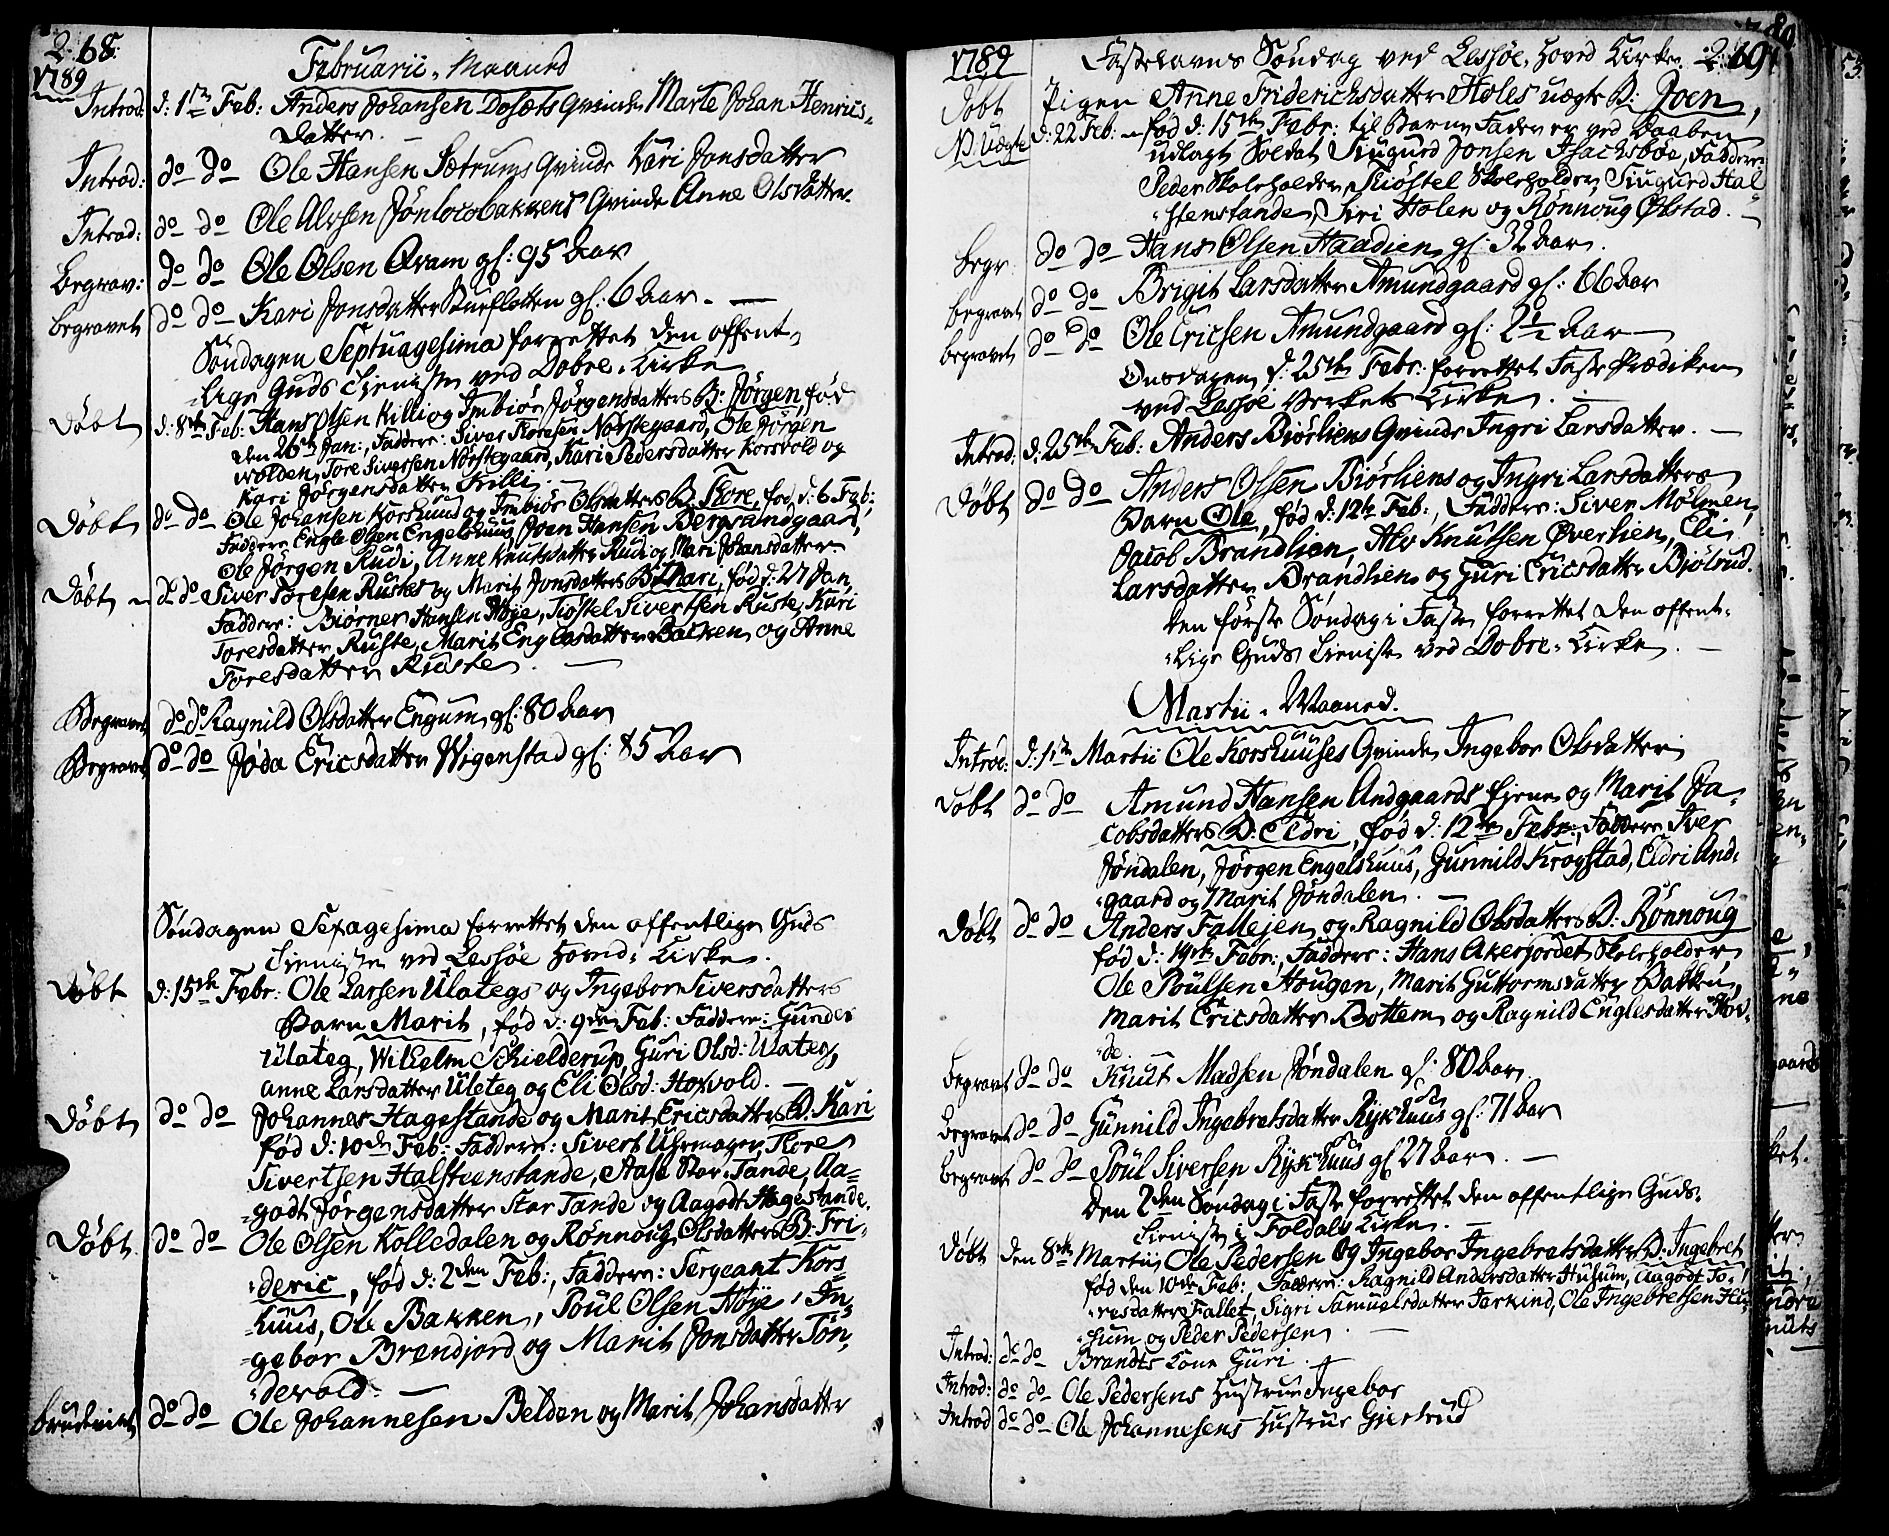 268.
1789
Februarii Maaned
Introd: d: 1ste Feb: Anders Johansen Dosæts Qvinde Marte Johan Henrics-
Datter.
Introd: do do Ole Hansen Sætrums Qvinde Kari Jonsdatter
Introd: do do Ole Alvsen Jønlocobakkens Qvinde Anne Olsdatter.
Begrav: do do Ole Olsen Qvam gl: 95 Aar
Begravet do do Kari Jonsdatter gl: 6 Aar.
Søndagen Septuagesima forrettet den offent-
lige Guds Tieniste ved Dobre Kirke
Døbt d: 8de Feb: Hans Olsen Killi og Imbiør Jørgensdatters B: Jørgen fød
den 26de Jan: Faddere: Siver Toresen Norstegaard, Ole Jørgen
wolden, Tore Siversen Norstegaard, Kari Pedersdatter Korsvold og
Kari Jørgensdatter Killi.
Døbt do do Ole Johansen Korshuus og Imbiør Olsdatters B: Tore, fød d: 6 Feb:,
Faddere Engle Olsen Engelshuus, Joen Hansen Bergsandgaard,
Ole Jørgen Rudi, Anne Knutsdatter Rudi og Mari Johansdatter.
Døbt do do Siver Toresen Rustes og Marit Jonsdatters B: Mari, fød d: 27 Jan,
Faddere: Biørner Hansen Høje, Tiøstel Sivertsen Ruste, Kari
Toresdatter Ruste, Marit Englesdatter Bakken og Anne
Toresdatter Ruste
Begravet do do Ragnild Olsdatter Engum gl: 80 Aar
Begravet do do Jøda Ericsdatter Wigenstad gl: 85 Aar
Søndagen Sexagesima forrettet den offentlige Guds
Tieniste ved Lessøe Hoved-Kirke.
Døbt d: 15de Febr: Ole Larsen Ulategs og Ingebor Siversdatters
Barn Marit, fød d: 9de Feb: Faddere: Gunder
Ulateg, Wilhelm Schielderup, Guri Olsd: Ulateg,
Anne Larsdatter Uleteg og Eli Olsd: Horvold.
Døbt do do Johannes Hagestande og Marit Ericsdatters B: Kari
fød d: 10de Feb: Faddere: Sivert Uhrmager, Tore
Sivertsen Halstenstande, Aase Stor-Tande, Aa-
godt Jørgensdatter Stor Tande og Aagodt Hagestande.
Døbt do do Ole Olsen Kolledalen og Rønnoug Olsdatters B: Fri-
deric, fød d: 2den Feb:, Faddere: Sergeant Kors-
huus, Ole Bakken, Poul Olsen Høje, In-
gebor Brendjord og Marit Jonsdatter Tøn-
devold.
Brudeviet do do Ole Johannesen Belden og Marit Johansdatter
1789
Fastelavns Søndag ved Lessøe Hoved Kirke. 269
Døbt Pigen Anne Friderichsdatter Holes uægte B: Joen,
NB. Uægte d: 22 Feb: fød d: 15de Febr: til Barne Fader er ved Daaben
udlagt Soldat Siugurd Jonsen Isachsbøe, Faddere:
Peder Skoleholder, Tiøstel Skoleholder, Siugurd Hal-
stenstande, Siri Holen og Rønnoug Øbstad.
Begr. do do Hans Olsen Haadien gl: 32 Aar.
Begravet do do Brigit Larsdatter Amundgaard gl: 66 Aar
Begravet do do Ole Ericsen Amundgaard gl: 2½ Aar
Onsdagen d: 25de Febr: forrettet Faste Prædiken
ved Lessøe Verkets Kirke.
Introd: d: 25de Feb: Anders Biørliens Qvinde Ingri Larsdatter.
Døbt do do Anders Olsen Biørliens og Ingri Larsdatters
Barn Ole, fød d: 12te Feb:, Faddere: Siver Mølmen,
Jacob Brandlien, Alv Knutsen Øverlien, Eli
Larsdatter Brandlien og Guri Ericsdatter Bjølrud.
den første Søndag i Faste forrettet den offent-
lige Guds Tieniste ved Dobre-Kirke.
Martii Maaned.
Introd: d: 1ste Martii Ole Korshuuses Qvinde Ingebor Olsdatter
Døbt do do Amund Hansen Andgaards og Marit Ja-
cobsdatters B: Eldri, fød d: 12te Febr:, Faddere Iver
Jøndalen, Jørgen Engelshuus, Gunnild Krogstad, Eldri And-
gaard og Marit Jøndalen.
Døbt do do Anders Fallejen og Ragnild Olsdatters B: Rønnoug
fød d: 19de Febr:, Faddere: Hans Akerjordet Skoleholder,
Ole Poulsen Hougen, Marit Guttormsdatter Bakken,
Marit Ericsdatter Bottem og Ragnild Englesdatter Hov-
de.
Begravet do do Knut Madsen Jøndalen gl: 80 Aar.
Begravet do do Gunnild Ingebretsdatter Rykhuus gl: 71 Aar
Begravet do do Poul Siversen Rykhuus gl 27 Aar.
den 2den Søndag i Faste forrettet den offentlige Guds-
Tieniste i Foldals Kirke.
Døbt den 8de Martii Ole Pedersen og Ingebor Ingebretsdatters B: Ingebret,
fød den 10de Feb: Faddere: Ragnild Andersdatter Husum, Aagodt To-
resdatter Fallet, Sigri Samuelsdatter Jarkind, Ole Ingebretsen Hu-
sum og Peder Pedersen.
Introd: do do Brandts Kone Guri.
Introd: do do Ole Pedersens Hustrue Ingebor
Introd do do Ole Johannesens Hustrue Giertrud